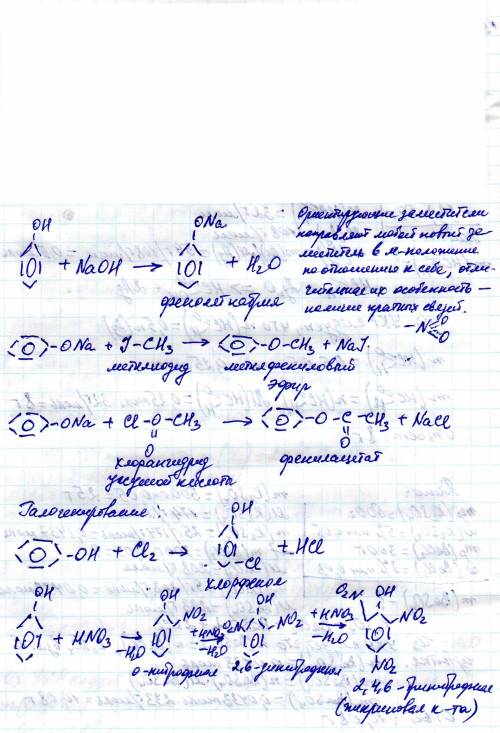 OH
ONa
+ NaOH → + H₂O
фенолят натрия
Ориентирующие заместители
направляют любой новый за-
меститель в м-положение
по отношению к себе, отли-
чительная их особенность –
наличие кратных связей.
-N O
O
-ONa + J-CH₃ → -O-CH₃ + NaJ.
метилиодид метилфениловый
эфир
-ONa + Cl-O-CH₃ → -O-C-CH₃ + NaCl
O O
хлорангидрид фенилацетат
уксусной кислоты
Галогенирование:
OH
-OH + Cl₂ → + HCl
Cl
хлорфенол
OH OH OH O₂N OH
NO₂ O₂N NO₂ +HNO₃ NO₂
+ HNO₃ → +HNO₃ → →
-H₂O -H₂O -H₂O
NO₂
о-нитрофенол 2,6-динитрофенол
2,4,6-тринитрофенол
(пикриновая к-та)